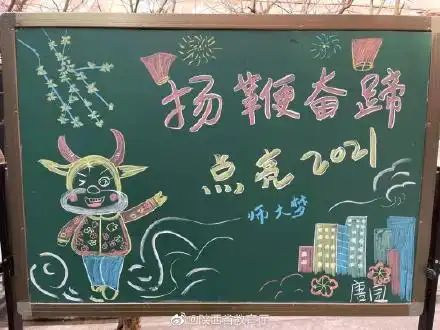 扬鞭奋蹄
点亮2021
师大梦
唐园
@陕西省教育厅